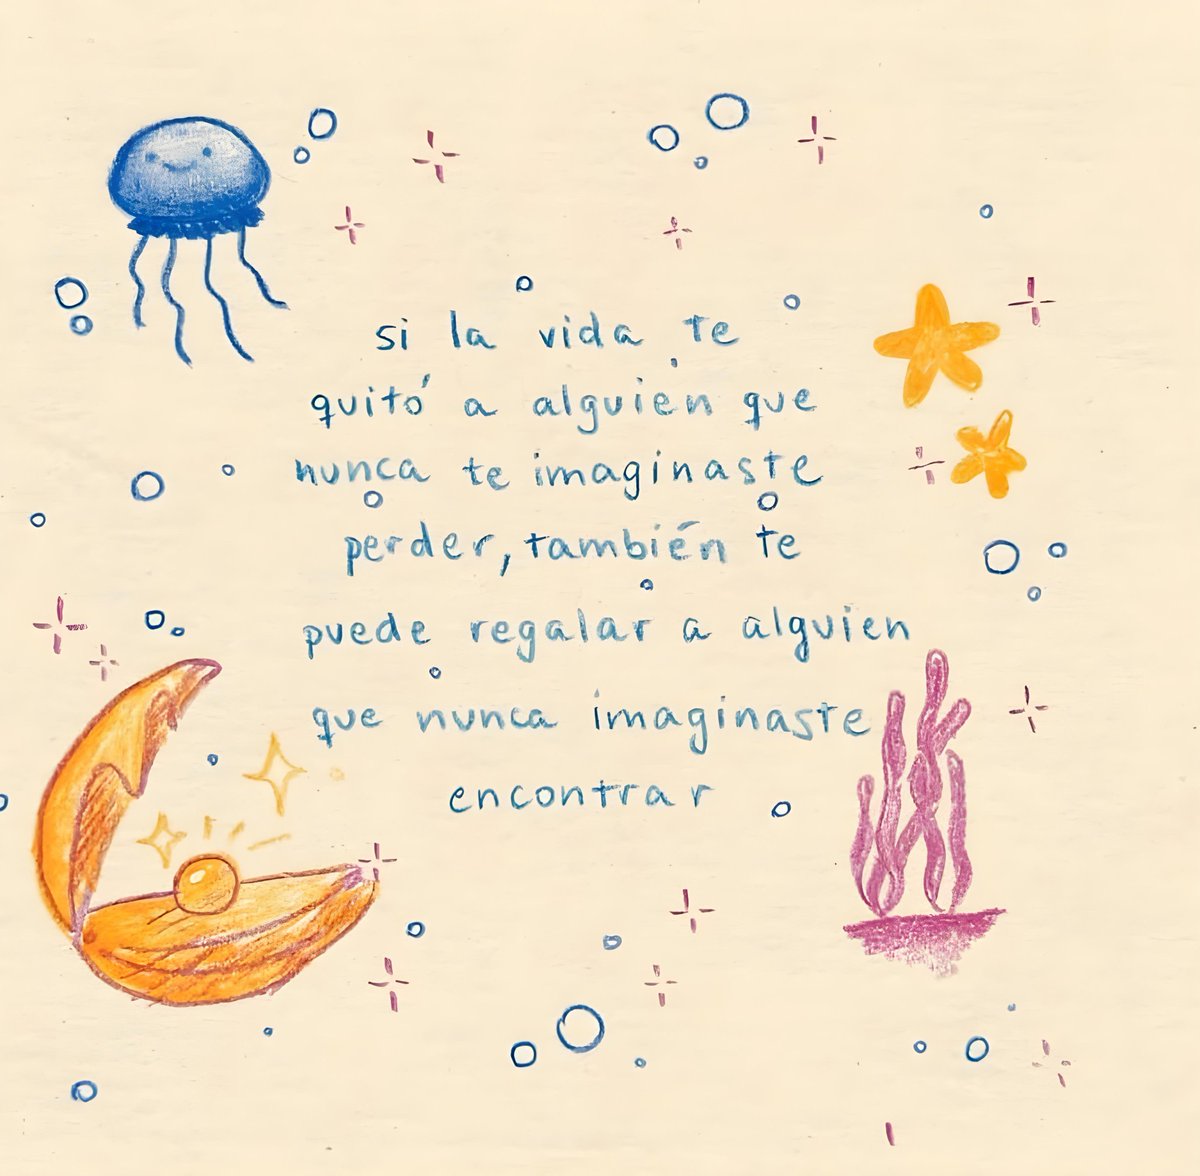 si la vida te
quitó a alguien que
nunca te imaginaste
perder, también te
puede regalar a alguien
que nunca imaginaste
encontrar